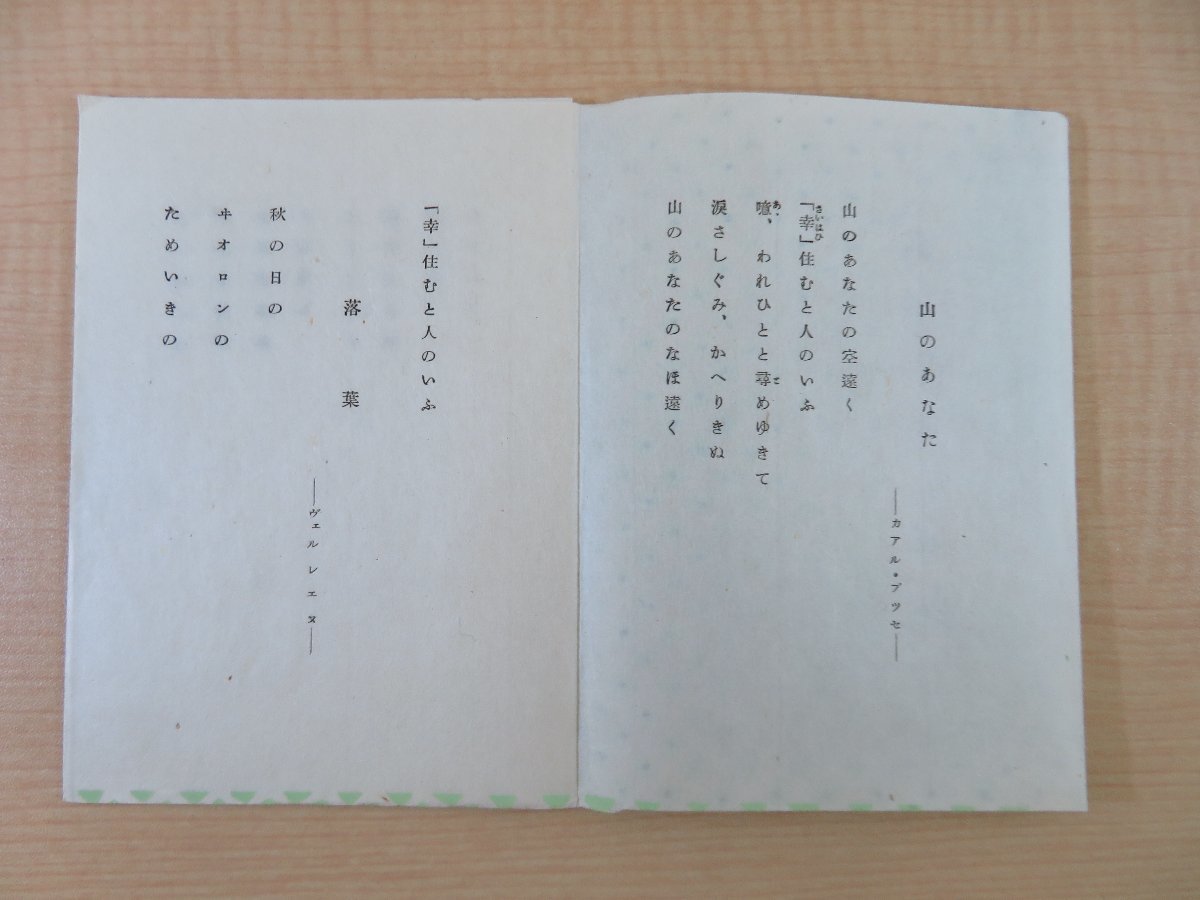 山のあなた
――カアル・ブッセ――
山のあなたの空遠く
「幸」住むと人のいふ
さいはひ
噫、われひとと尋めゆきて
あゝ
と
涙さしぐみ、かへりきぬ
山のあなたのなほ遠く
「幸」住むと人のいふ
落葉
――ヴェルレエヌ――
秋の日の
ヰオロンの
ためいきの